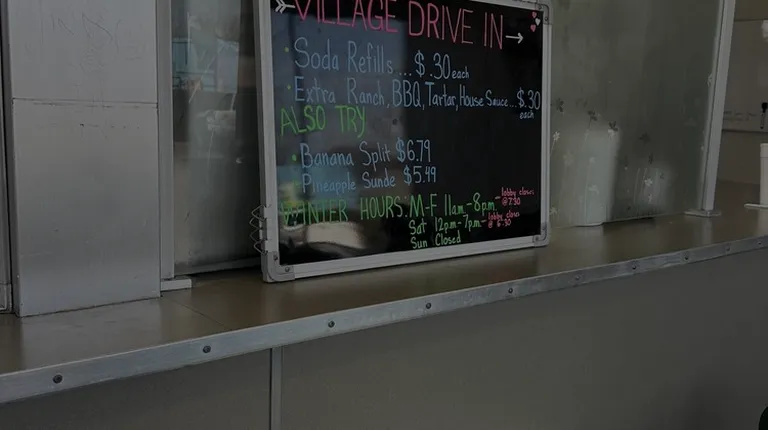 VILLAGE DRIVE IN →
• Soda Refills... $.30 each
• Extra Ranch, BBQ, Tartar, House Sauce... $.30 each
ALSO TRY
• Banana Split $6.79
• Pineapple Sunde $5.49
WINTER HOURS: M-F 11am-8pm- lobby closes @7:30
Sat 12pm-7pm- lobby closes @ 6:30
Sun Closed